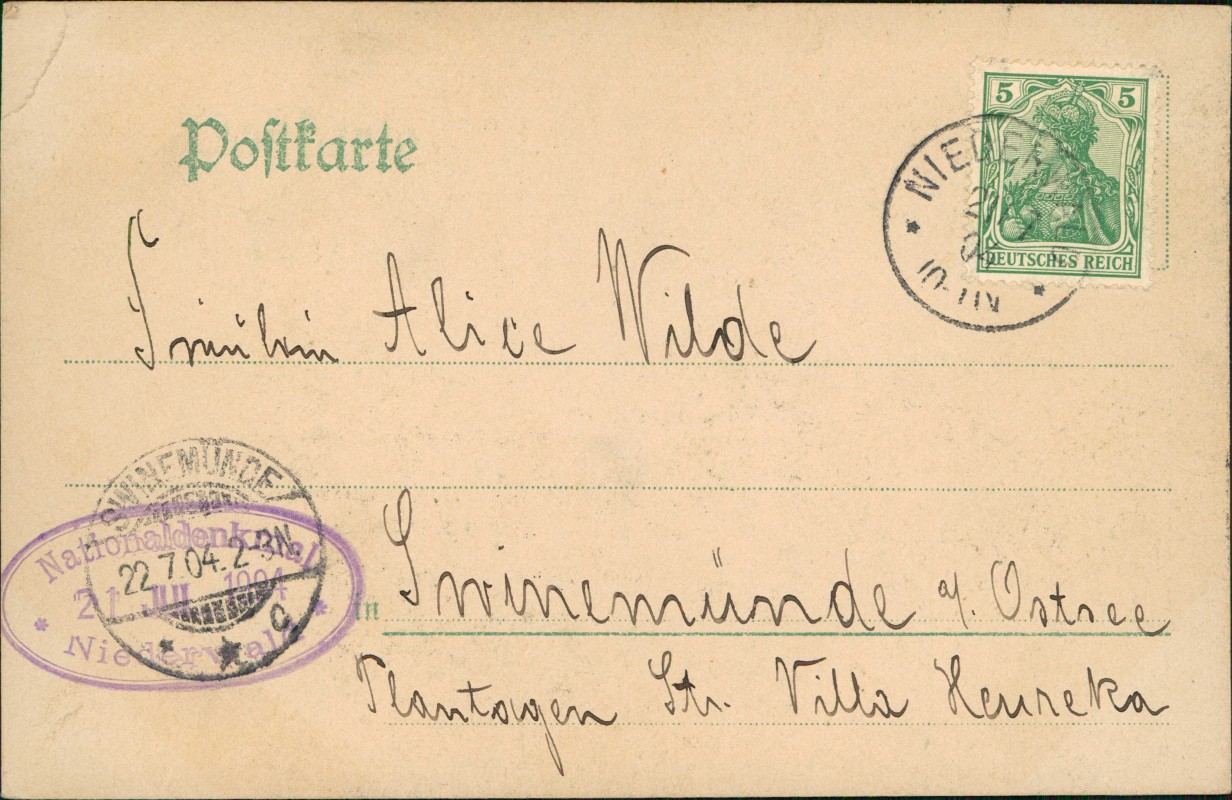 Postkarte
5 5
DEUTSCHES REICH
NIEDER
21 7
04
11-12N
Fräulein Alice Wilde
SWINEMÜNDE
22.7.04.2-3N.
Nationaldenkmal
21 JUL 1904
Niederwald
in Swinemünde a/. Ostsee
Plantagen Str. Villa Heureka